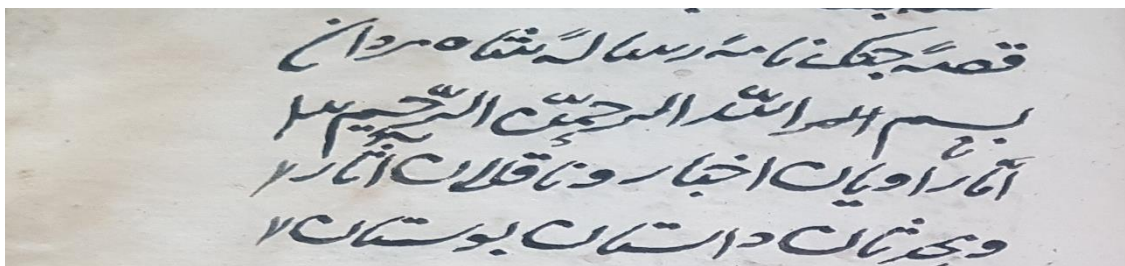 قصهٔ جنک نامهٔ رسالهٔ شاه مردان
بسم الله الرحمن الرحیم
اما راویان اخبار و ناقلان آثار
و محدثان داستان بوستان